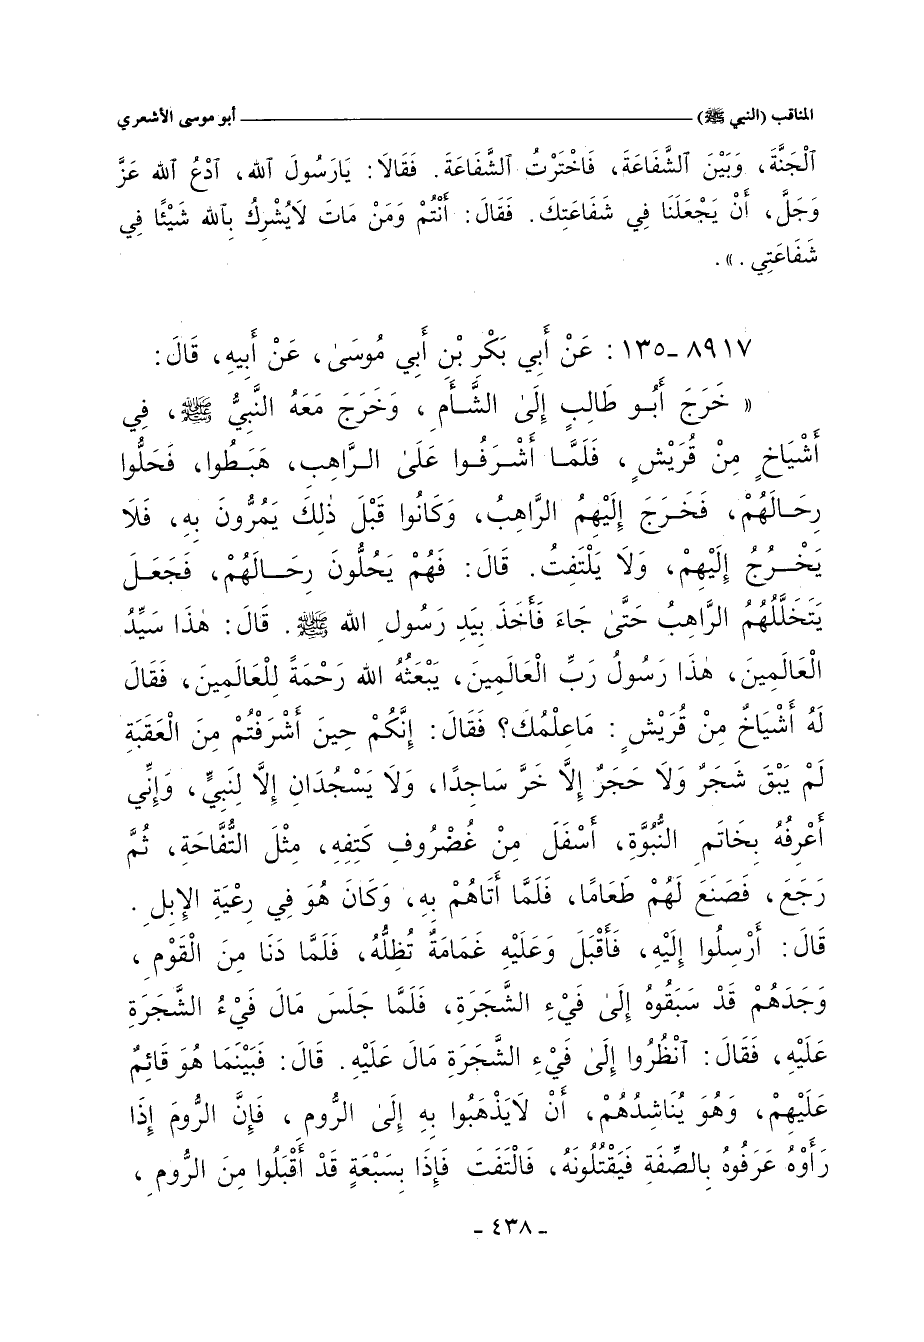 المناقب (النبي ﷺ) ــــــــــــــــــــــــــــــــ أبو موسى الأشعري
ٱلْجَنَّةَ، وَبَيْنَ ٱلشَّفَاعَةَ، فَاخْتَرْتُ ٱلشَّفَاعَةَ. فَقَالَا: يَارَسُولَ ٱلله، ٱدْعُ ٱلله عَزَّ
وَجَلَّ، أَنْ يَجْعَلَنَا فِي شَفَاعَتِكَ. فَقَالَ: أَنْتُمْ وَمَنْ مَاتَ لَايُشْرِكُ بِٱلله شَيْئًا فِي
شَفَاعَتِي.».
٨٩١٧ـ١٣٥: عَنْ أَبِي بَكْرِ بْنِ أَبِي مُوسَىٰ، عَنْ أَبِيهِ، قَالَ:
« خَرَجَ أَبُو طَالِبٍ إِلَىٰ الشَّأْمِ، وَخَرَجَ مَعَهُ النَّبِيُّ ﷺ، فِي
أَشْيَاخٍ مِنْ قُرَيْشٍ، فَلَمَّا أَشْرَفُوا عَلَىٰ الرَّاهِبِ، هَبَطُوا، فَحَلُّوا
رِحَالَهُمْ، فَخَرَجَ إِلَيْهِمُ الرَّاهِبُ، وَكَانُوا قَبْلَ ذٰلِكَ يَمُرُّونَ بِهِ، فَلَا
يَخْرُجُ إِلَيْهِمْ، وَلَا يَلْتَفِتُ. قَالَ: فَهُمْ يَحُلُّونَ رِحَالَهُمْ، فَجَعَلَ
يَتَخَلَّلُهُمُ الرَّاهِبُ حَتَّىٰ جَاءَ فَأَخَذَ بِيَدِ رَسُولِ الله ﷺ. قَالَ: هٰذَا سَيِّدُ
الْعَالَمِينَ، هٰذَا رَسُولُ رَبِّ الْعَالَمِينَ، يَبْعَثُهُ الله رَحْمَةً لِلْعَالَمِينَ، فَقَالَ
لَهُ أَشْيَاخٌ مِنْ قُرَيْشٍ: مَاعِلْمُكَ؟ فَقَالَ: إِنَّكُمْ حِينَ أَشْرَفْتُمْ مِنَ الْعَقَبَةِ
لَمْ يَبْقَ شَجَرٌ وَلَا حَجَرٌ إِلَّا خَرَّ سَاجِدًا، وَلَا يَسْجُدَانِ إِلَّا لِنَبِيٍّ، وَإِنِّي
أَعْرِفُهُ بِخَاتَمِ النُّبُوَّةِ، أَسْفَلَ مِنْ غُضْرُوفِ كَتِفِهِ، مِثْلَ التُّفَّاحَةِ، ثُمَّ
رَجَعَ، فَصَنَعَ لَهُمْ طَعَامًا، فَلَمَّا أَتَاهُمْ بِهِ، وَكَانَ هُوَ فِي رِعْيَةِ الإِبِلِ.
قَالَ: أَرْسِلُوا إِلَيْهِ، فَأَقْبَلَ وَعَلَيْهِ غَمَامَةٌ تُظِلُّهُ، فَلَمَّا دَنَا مِنَ الْقَوْمِ،
وَجَدَهُمْ قَدْ سَبَقُوهُ إِلَىٰ فَيْءِ الشَّجَرَةِ، فَلَمَّا جَلَسَ مَالَ فَيْءُ الشَّجَرَةِ
عَلَيْهِ، فَقَالَ: ٱنْظُرُوا إِلَىٰ فَيْءِ الشَّجَرَةِ مَالَ عَلَيْهِ. قَالَ: فَبَيْنَمَا هُوَ قَائِمٌ
عَلَيْهِمْ، وَهُوَ يُنَاشِدُهُمْ، أَنْ لَايَذْهَبُوا بِهِ إِلَىٰ الرُّومِ، فَإِنَّ الرُّومَ إِذَا
رَأَوْهُ عَرَفُوهُ بِالصِّفَةِ فَيَقْتُلُونَهُ، فَالْتَفَتَ فَإِذَا بِسَبْعَةٍ قَدْ أَقْبَلُوا مِنَ الرُّومِ،
ـ ٤٣٨ ـ